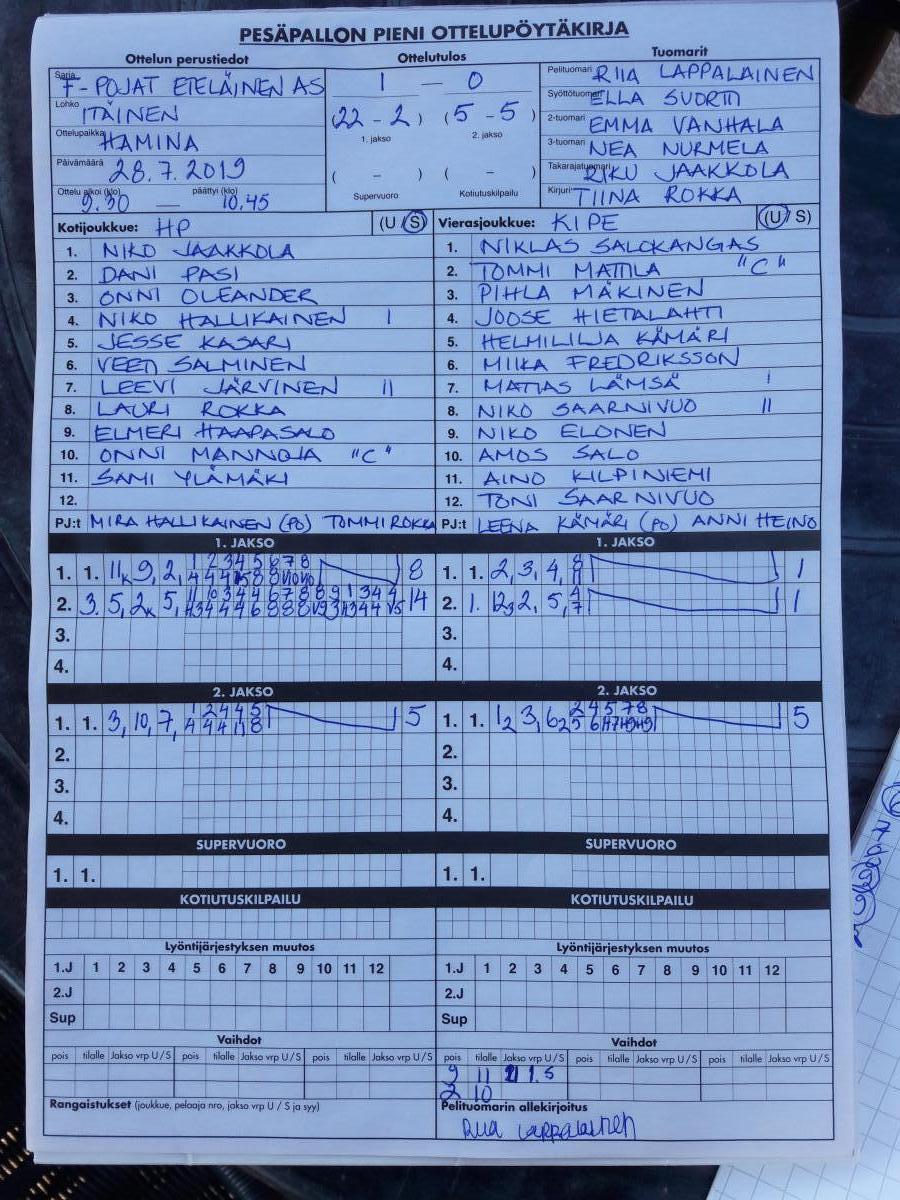 PESÄPALLON PIENI OTTELUPÖYTÄKIRJA
Ottelun perustiedot Ottelutulos Tuomarit
Sarja F-POJAT ETELÄINEN AS
Lohko ITÄINEN
Ottelupaikka HAMINA
Päivämäärä 28.7.2019
Ottelu alkoi (klo) päättyi (klo)
9.30 — 10.45
1 — 0
(22 - 2) (5 - 5)
1. jakso 2. jakso
( - ) ( - )
Supervuoro Kotiutuskilpailu
Pelituomari RIIA LAPPALAINEN
Syöttötuomari ELLA SUORTTI
2-tuomari EMMA VANHALA
3-tuomari NEA NURMELA
Takarajatuomari RIKU JAAKKOLA
Kirjuri TIINA ROKKA
Kotijoukkue: HP (U S)
1. NIKO JAAKKOLA
2. DANI PASI
3. ONNI OLEANDER
4. NIKO HALLIKAINEN I
5. JESSE KASARI
6. VEETI SALMINEN
7. LEEVI JÄRVINEN II
8. LAURI ROKKA
9. ELMERI HAAPASALO
10. ONNI MANNOJA "C"
11. SAMI YLÄMÄKI
12.
PJ:t MIRA HALLIKAINEN (PO) TOMMI ROKKA
Vierasjoukkue: KIPE (U/ S)
1. NIKLAS SALOKANGAS
2. TOMMI MATTILA "C"
3. PIHLA MÄKINEN
4. JOOSE HIETALAHTI
5. HELMILILJA KÄMÄRI
6. MIIKA FREDRIKSSON
7. MATIAS LÄMSÄ I
8. NIKO SAARNIVUO II
9. NIKO ELONEN
10. AMOS SALO
11. AINO KILPINIEMI
12. TONI SAARNIVUO
PJ:t LEENA KÄMÄRI (PO) ANNI HEINO
1. JAKSO 1. JAKSO
1. 1. 8
2. 3. 14
3.
4.
1. 1. 2, 3, 4, 1
2. 1. 1
3.
4.
2. JAKSO 2. JAKSO
1. 1. 3, 10, 7, 5
2.
3.
4.
1. 1. 5
2.
3.
4.
SUPERVUORO SUPERVUORO
1. 1. 1. 1.
KOTIUTUSKILPAILU KOTIUTUSKILPAILU
Lyöntijärjestyksen muutos Lyöntijärjestyksen muutos
1.J 1 2 3 4 5 6 7 8 9 10 11 12 1.J 1 2 3 4 5 6 7 8 9 10 11 12
2.J 2.J
Sup Sup
Vaihdot Vaihdot
pois tilalle Jakso vrp U / S pois tilalle Jakso vrp U / S pois tilalle Jakso vrp U / S
pois tilalle Jakso vrp U / S pois tilalle Jakso vrp U / S pois tilalle Jakso vrp U / S
9 11 1.S
2 10
Rangaistukset (joukkue, pelaaja nro, jakso vrp U / S ja syy)
Pelituomarin allekirjoitus
Riia Lappalainen